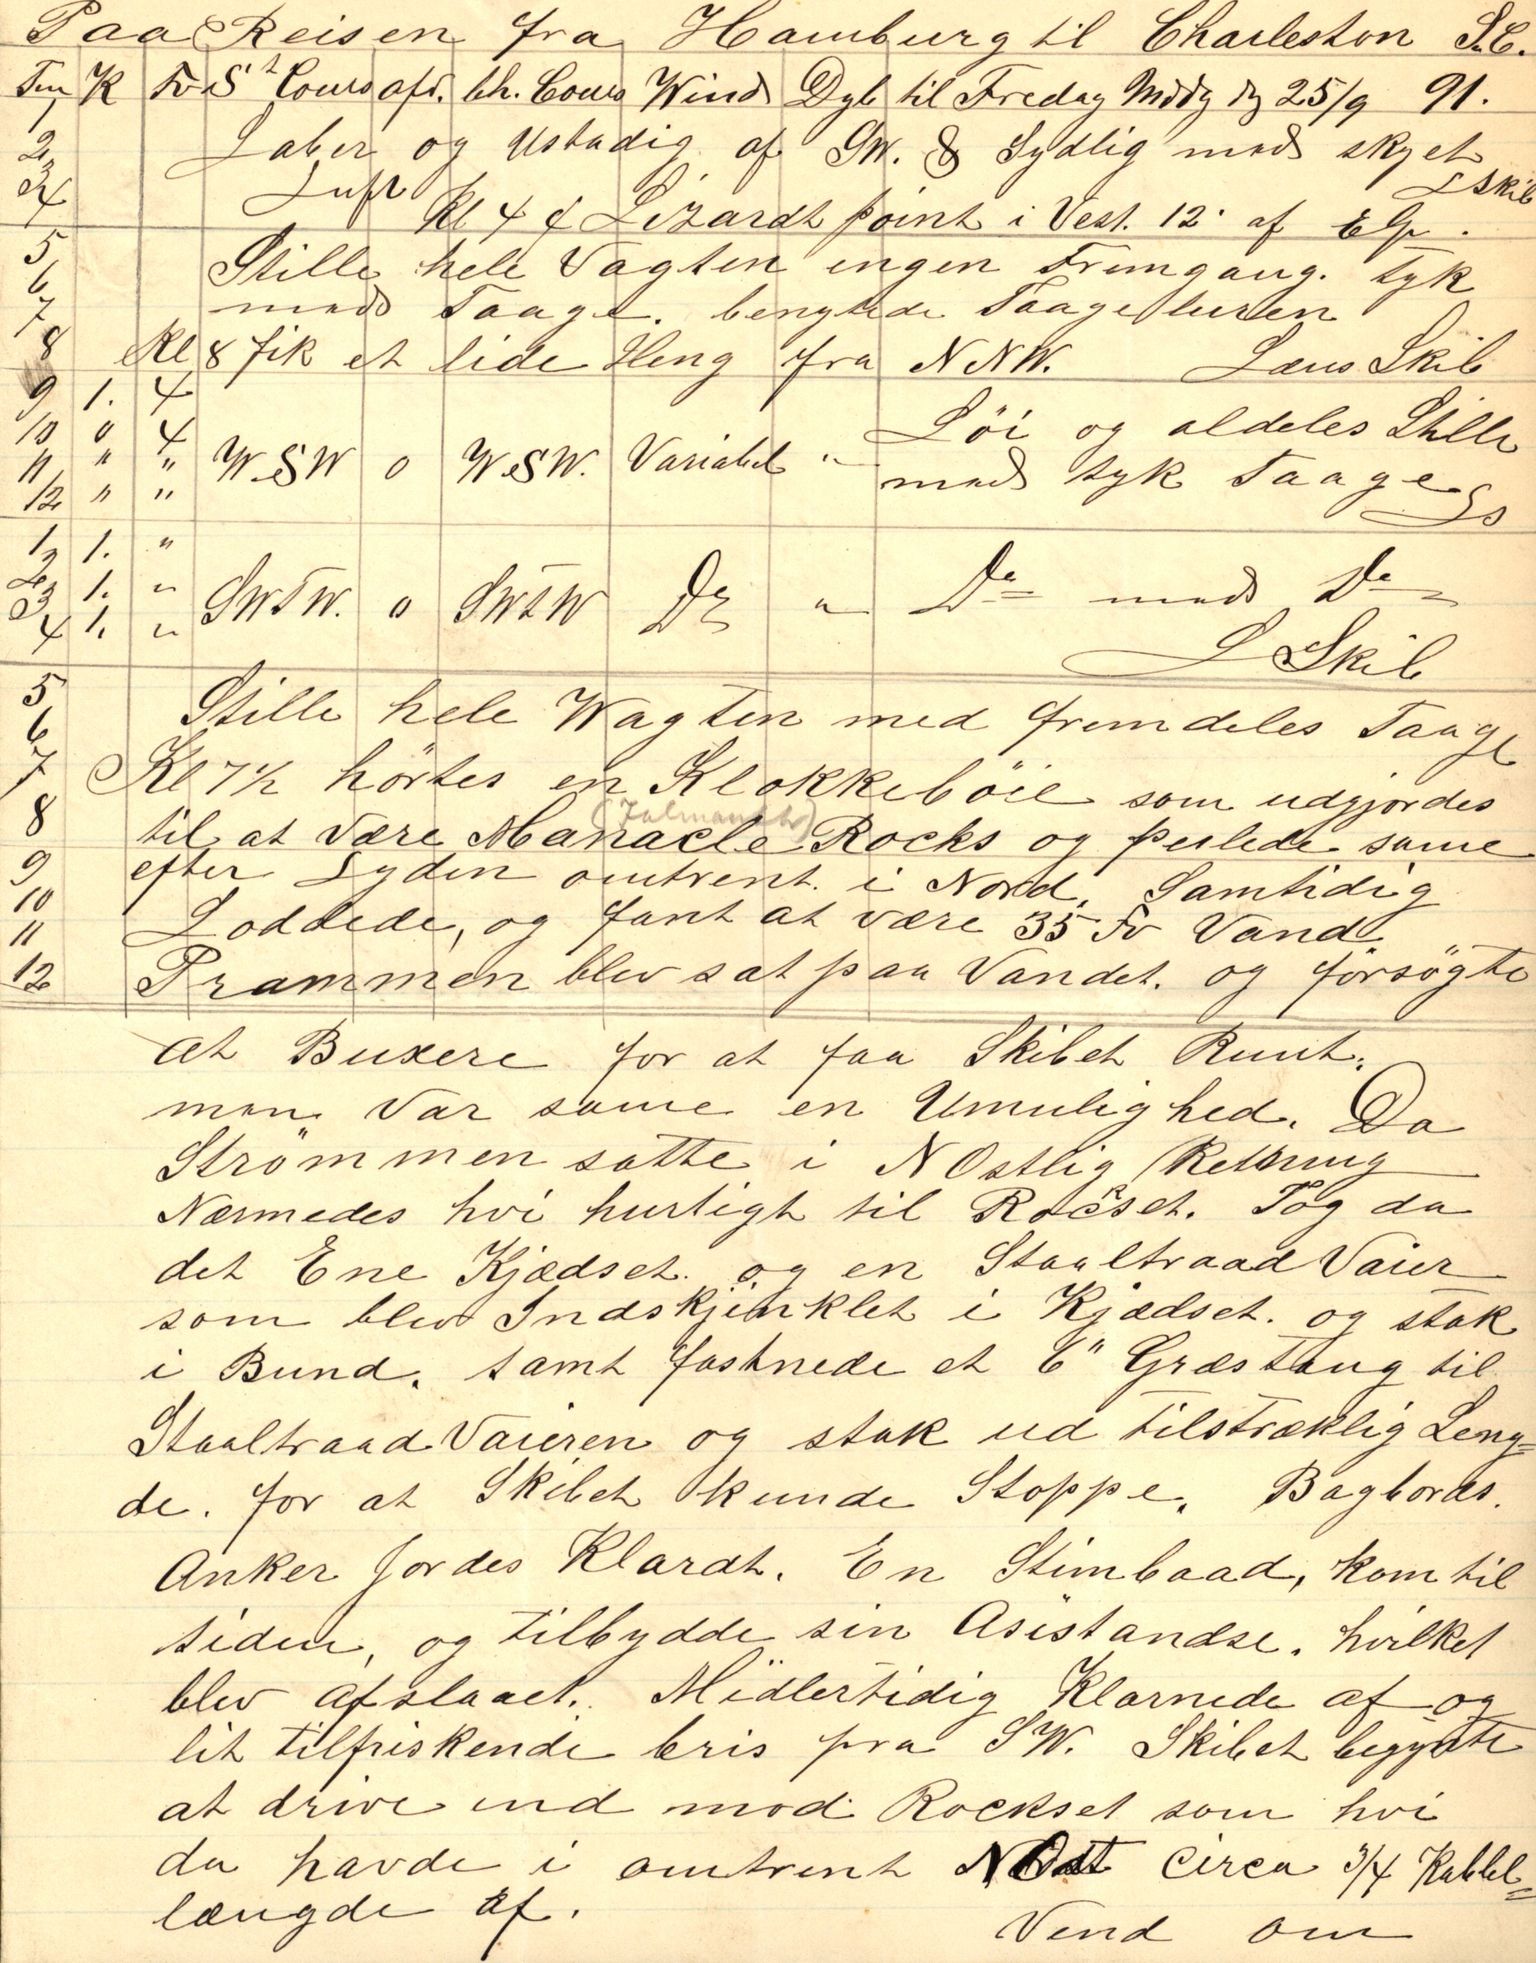 Paa Reisen fra Hamburg til Charleston S.C.
Tm K Fv St Cours afd. bh. Cours Wind Dyb til Fredag Middg dg 25/9 91.
1
2 Laber og Ustadig af SW. & Sydlig med skyet
3 Luft L Skib
4 Kl 4 Lizardt point i Vest. 12' af Elp.
5 Stille hele Vagten ingen Fremgang. Tyk
6 med Taage. benytede Taageluren
7
8 Kl 8 fik et lide Heng fra NNW. Læns Skib
9 1. 4
10 0 4 Löi og aldeles Stille
11 " " WSW 0 WSW. Variabel " med tyk Taage
12 " " Ls
1 1. "
2 1. " SWTW. 0 SWTW Do " Do med Do
3 1. "
4 1. " L Skib
5 Stille hele Wagten med fremdeles Taage
6
7 Kl 7½ hörtes en Klokkeböie som udgjordes
(Falmouth)
8 til at være Manacle Rocks og peilede same
9 efter Lyden omtrent i Nord. Samtidig
10 Loddede, og fant at være 35 Fv Vand
11
12 Prammen blev sat paa Vandet. og försögte
at Buxere for at faa Skibet Runt.
men var same en Umulighed. Da
Strömmen satte i NOstlig Retning
Nærmedes hvi hurtigt til Rockset. Tog da
det Ene Kjædset og en Staaltraad Vaier
som blev Indskjenklet i Kjædset. og stak
i Bund. samt fastnede et 6" Græstaug til
Staaltraad Vaieren og stak ud tilstræklig Leng=
de. for at Skibet kunde Stoppe. Bagbords.
Anker fordes Klardt. En Stimbaad, kom til
siden, og tilbydde sin Asistandse. hvilket
blev afslaaet. Midlertidig Klarnede af og
lit tilfriskende bris fra SW. Skibet begynte
at drive ind mod Rockset som hvi
da havde i omtrent NOst circa 3/4 Kabbel=
længde af.
Vend om